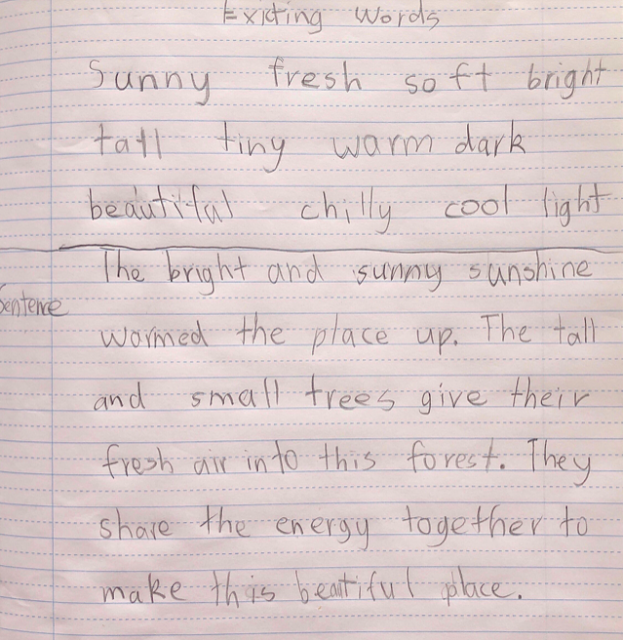 Exicting Words
Sunny fresh soft bright
tall tiny warm dark
beautiful chilly cool light
The bright and sunny sunshine
Sentence
wormed the place up. The tall
and small trees give their
fresh air into this forest. They
share the energy together to
make this beautiful place.